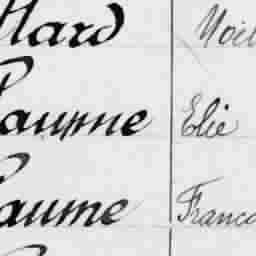 llard Noël
Laurme Elie
Laume Franço